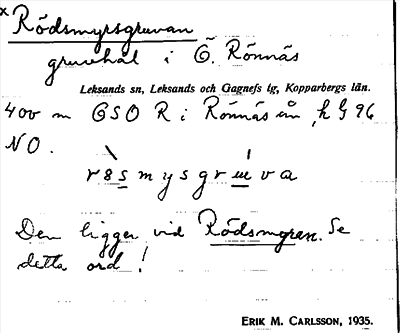 x Rödsmyrsgruvan
gruvhål i Ö. Rönnäs
Leksands sn, Leksands och Gagnefs tg, Kopparbergs län.
400 m OSO R i Rönnäs ån, h G 96
NO.
r8smysgruva
Den ligger vid Rödsmyren. Se
detta ord!
ERIK M. CARLSSON, 1935.